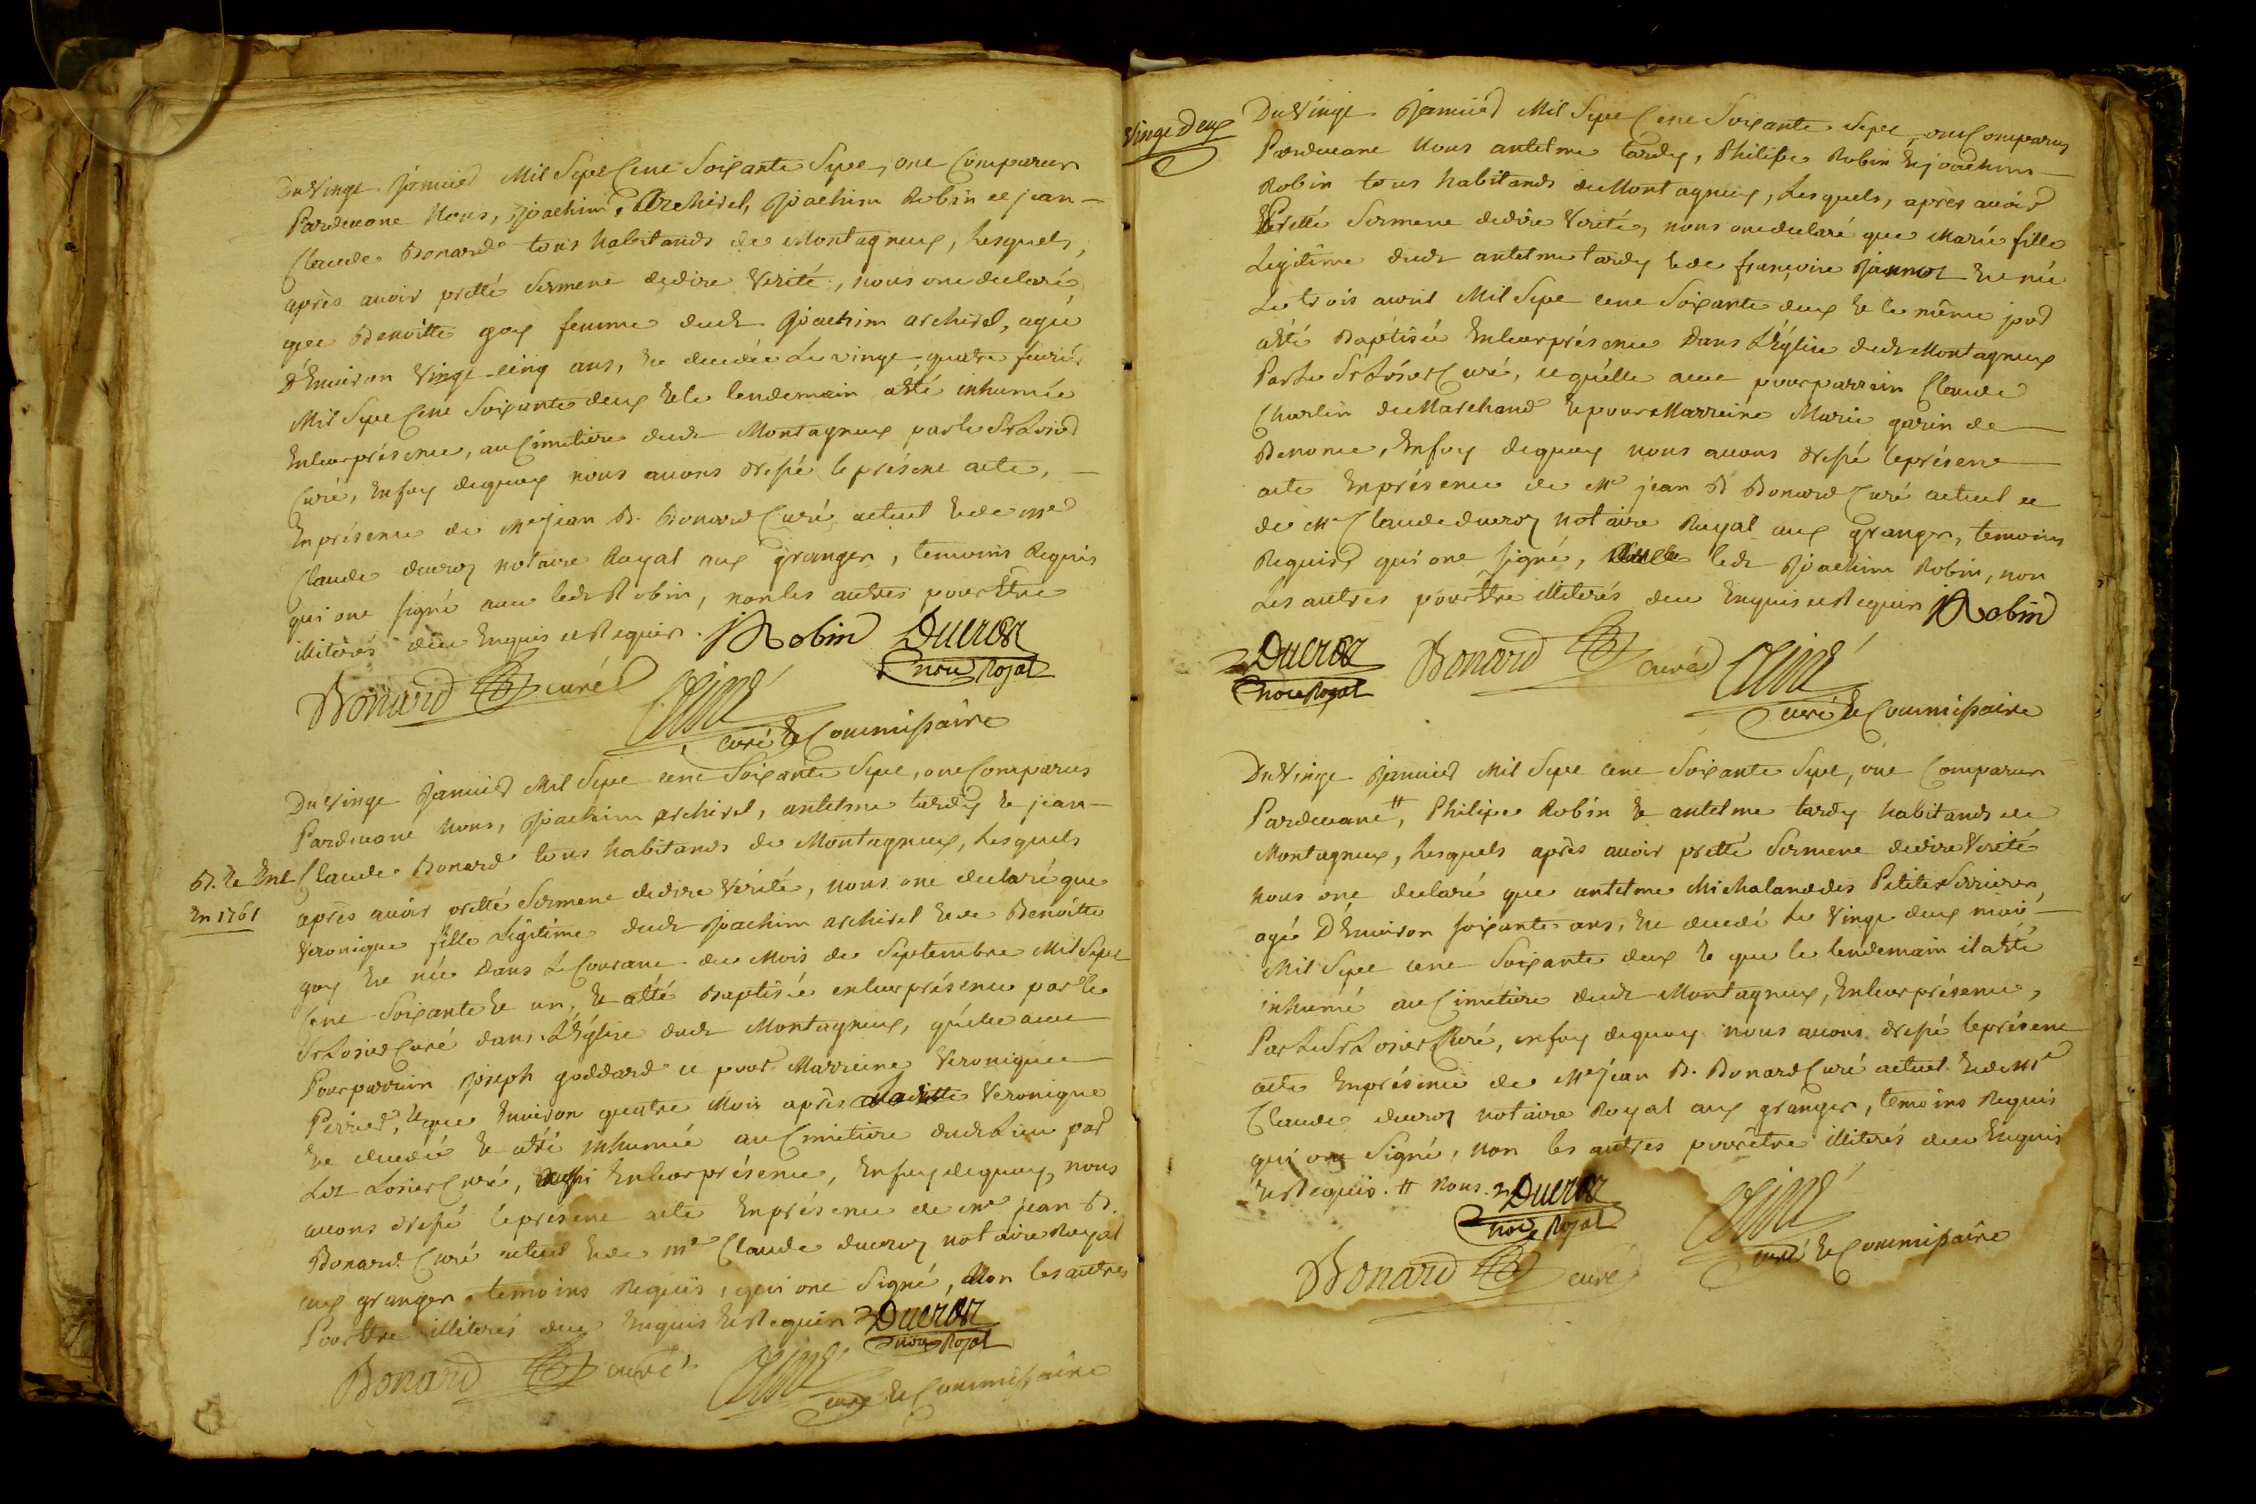 Du Vingt Janvier Mil Sept Cent Soixante Sept, ont Comparus
Pardevant Nous, Joachim Archirel, Joachim Robin et jean
Claude Bonard tous habitands de Montagneux, Lesquels,
après avoir pretté Serment de dire Verité, nous ont declaré
que Benoitte goy femme dudt Joachim archirel, agée
D'Environ Vingt-cinq ans, Est decedée Le vingt-quatre fevrier
Mil Sept Cent Soixante deux Et le lendemain a été inhumée
En leur présence, au Cimetiere dudt Montagneux par le Sr Losier
Curé, En foy de quoy nous avons dressé le présent acte,
En présence de Me jean B. Bonard Curé actuel Et de Me
Claude ducroz notaire Royal aux granges, temoins Requis
qui ont signé avec ledt Robin, non les autres pour Etre
illiterés de ce Enquis et Requis. J Robin Ducroz
Bonard curé notre Royal
curé Et Commissaire
Du Vingt Janvier Mil Sept cent Soixante Sept, ont Comparus
Pardevant Nous, Joachim archirel, antelme tardy Et jean
B. Et Ent Claude Bonard tous habitands de Montagneux, Lesquels
En 1761 après avoir pretté Serment de dire Vérité, nous ont declaré que
Veronique fille Légitime dudt Joachim archirel Et de Benoitte
goy Est née dans Le Courant du Mois de Septembre Mil Sept
Cent Soixante Et un, Et a été Baptisée en leur présence par le
Sr Losier Curé dans L'Eglise dudt Montagneux, qu'elle a eu
Pour parrain Joseph goddard et pour Marreine Veronique
Perrier, Et que Environ quatre Mois après Veronique
Est decedée Et a été inhumée au Cimetiere dudt Lieu par
Ledt Losier Curé, aussi En leur présence, En foy de quoy, nous
avons dressé le présent acte En présence de me jean B.
Bonard Curé actuel Et de me Claude ducroz notaire Royal
aux granges temoins Requis, qui ont Signé, Non les autres
Pour Etre illiterés de ce Enquis Et Requis Ducroz
Bonard curé notre Royal
curé Et Commissaire
Vingt Deux
Du Vingt Janvier Mil Sept Cent Soixante Sept, ont Comparus
Pardevant Nous antelme tardy, Philipe Robin Et joachim
Robin tous habitands de Montagneux, Lesquels, après avoir
Pretté Serment de dire Verité, nous ont declaré que Marie fille
Legitime dudt antelme tardy Et de françoise Est née
Le trois avril Mil Sept cent Soixante deux Et le même jour
a été Baptisée En leur présence Dans L'Eglise dudt Montagneux
Par Le Sr Losier Curé, et qu'elle a eu pour parrain Claude
Charlin de Marchand Et pour Marreine Marie garin de
Benonce, En foy de quoy nous avons dressé le présent
acte En présence de Me jean B Bonard Curé actuel et
de Me Claude ducroz notaire Royal aux granges, temoins
Requis qui ont signé, ledt Joachim Robin, non
Les autres pour Etre illiterés de ce Enquis et Requis J Robin
Ducroz Bonard curé
notre Royal curé Et Commissaire
Du Vingt Janvier Mil Sept cent Soixante Sept, ont Comparus
Pardevant #, Philipe Robin Et antelme tardy habitands de
Montagneux, Lesquels après avoir pretté Serment de dire Verité
nous ont declaré que antelme Michaland des Petites Serrieres,
agé D'Environ soixante ans, Est decedé Le Vingt deux may
Mil Sept cent Soixante deux Et que le lendemain il a été
inhumé au Cimetiere dudt Montagneux, En leur présence,
Par Le Sr Losier Curé, en foy de quoy nous avons dressé le présent
acte En présence de Me jean B. Bonard Curé actuel Et de Me
Claude ducroz notaire Royal aux granges, temoins Requis
qui ont Signé, non les autres pour être illiterés de ce Enquis
Et Requis. # Nous. Ducroz
notre Royal
Bonard curé curé Et Commissaire